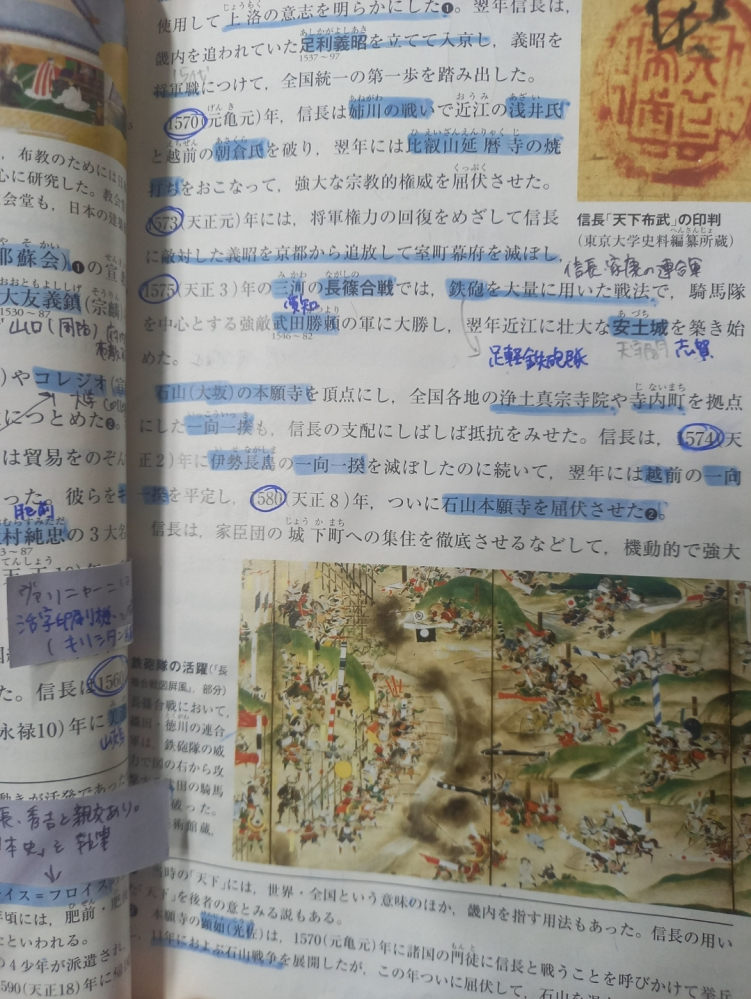 使用して上洛の意志を明らかにした❶。翌年信長は，
畿内を追われていた足利義昭を立てて入京し，義昭を
1537～97
将軍職につけて，全国統一の第一歩を踏み出した。
1570(元亀元)年，信長は姉川の戦いで近江の浅井氏
と越前の朝倉氏を破り，翌年には比叡山延暦寺の焼
打ちをおこなって，強大な宗教的権威を屈伏させた。
1573(天正元)年には，将軍権力の回復をめざして信長
に敵対した義昭を京都から追放して室町幕府を滅ぼし，
信長 家康の連合軍
1575(天正3)年の三河の長篠合戦では，鉄砲を大量に用いた戦法で，騎馬隊
愛知
を中心とする強敵武田勝頼の軍に大勝し，翌年近江に壮大な安土城を築き始
1546～82
めた。
足軽鉄砲隊
天守閣
志賀
石山(大坂)の本願寺を頂点にし，全国各地の浄土真宗寺院や寺内町を拠点
にした一向一揆も，信長の支配にしばしば抵抗をみせた。信長は，1574(天
正2)年に伊勢長島の一向一揆を滅ぼしたのに続いて，翌年には越前の一向
一揆を平定し，1580(天正8)年，ついに石山本願寺を屈伏させた❷。
信長は，家臣団の城下町への集住を徹底させるなどして，機動的で強大
信長「天下布武」の印判
(東京大学史料編纂所蔵)
鉄砲隊の活躍(『長
篠合戦図屏風』，部分)
長篠合戦において，
織田・徳川の連合
軍は，鉄砲隊の威
当時の「天下」には，世界・全国という意味のほか，畿内を指す用法もあった。信長の用い
た「天下」を後者の意とみる説もある。
本願寺の顕如(光佐)は，1570(元亀元)年に諸国の門徒に信長と戦うことを呼びかけて挙兵
11年におよぶ石山戦争を展開したが，この年ついに屈伏して，石山を
，布教のためには日
心に研究した。教会
会堂も，日本の建築
耶蘇会)❶の宣
大友義鎮(宗麟)
1530～87
山口(周防)
)やコレジオ(宣
につとめた❷。
は貿易をのぞん
った。彼らをキ
肥前
村純忠の3大名
ヴァリニャーニ
活字印刷機
(キリシタン
た。信長は1560
永禄10)年に美
長、秀吉と親交あり。
日本史」を執筆
イス=フロイス
年頃には，肥前・肥
たといわれる。
の4少年が派遣され，
590(天正18)年に帰